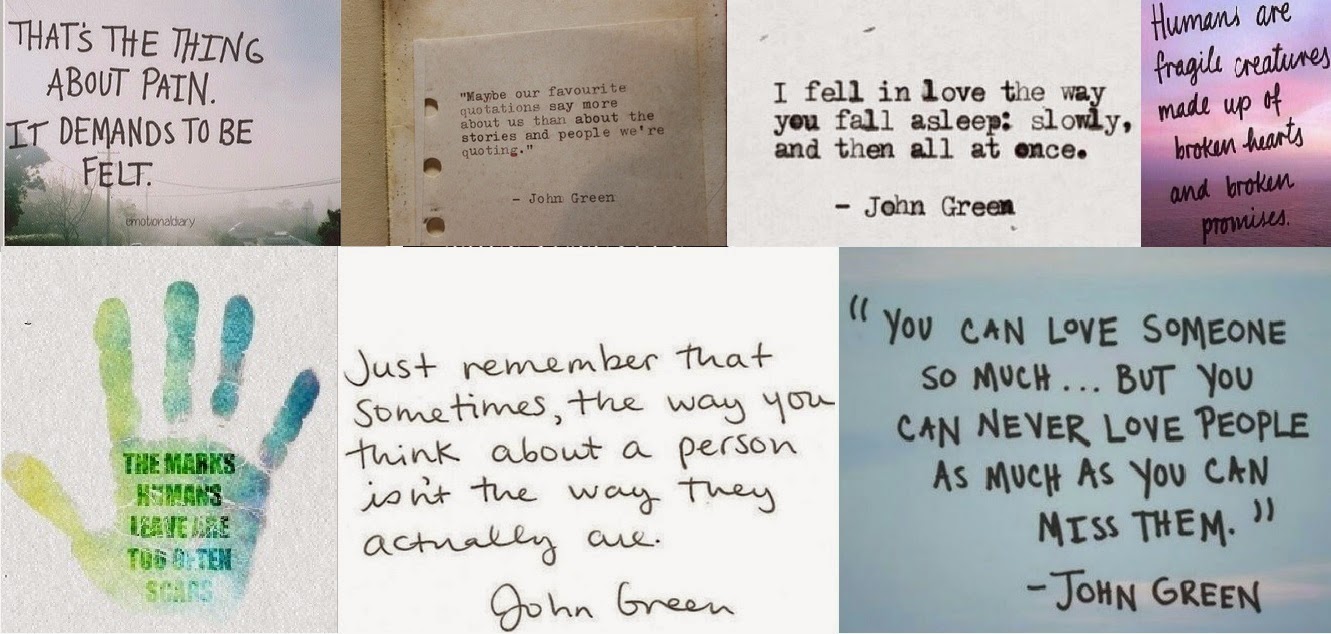 THAT'S THE THING
ABOUT PAIN.
IT DEMANDS TO BE
FELT.
emotionaldiary
"Maybe our favourite
quotations say more
about us than about the
stories and people we're
quoting."
- John Green
I fell in love the way
you fall asleep: slowly,
and then all at once.
- John Green
Humans are
fragile creatures
made up of
broken hearts
and broken
promises.
THE MARKS
HUMANS
LEAVE ARE
TOO OFTEN
SCARS
Just remember that
sometimes, the way you
think about a person
isn't the way they
actually are.
John Green
"YOU CAN LOVE SOMEONE
SO MUCH... BUT YOU
CAN NEVER LOVE PEOPLE
AS MUCH AS YOU CAN
MISS THEM."
-JOHN GREEN